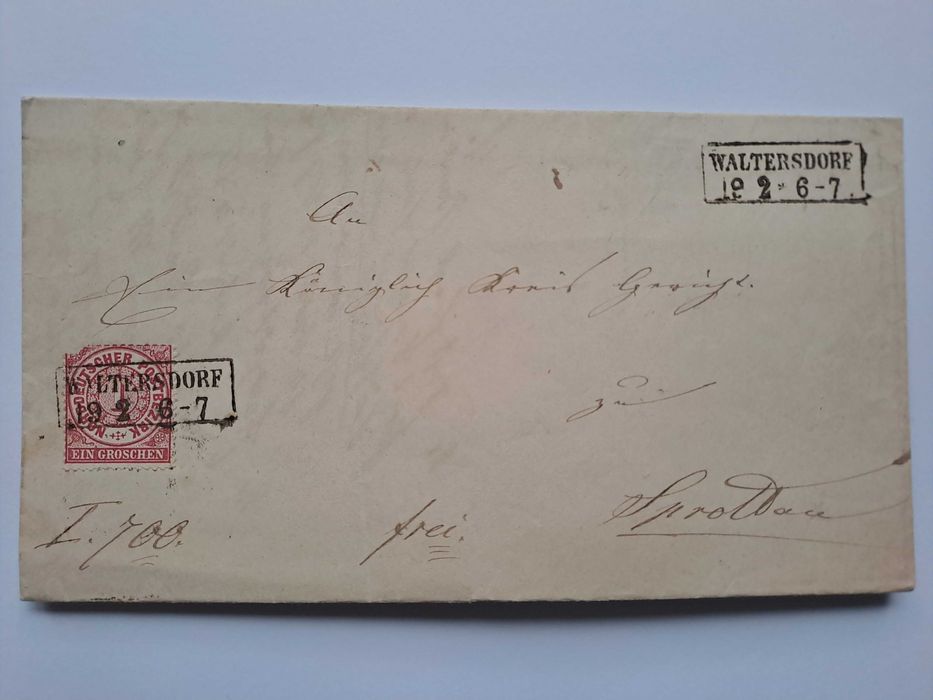 WALTERSDORF
19 2 * 6-7
An
Ein Königlich Kreis Gericht.
zu
Sprottau
NORDDEUTSCHER POSTBEZIRK
EIN GROSCHEN
WALTERSDORF
19 2 6-7
I. 700.
frei.